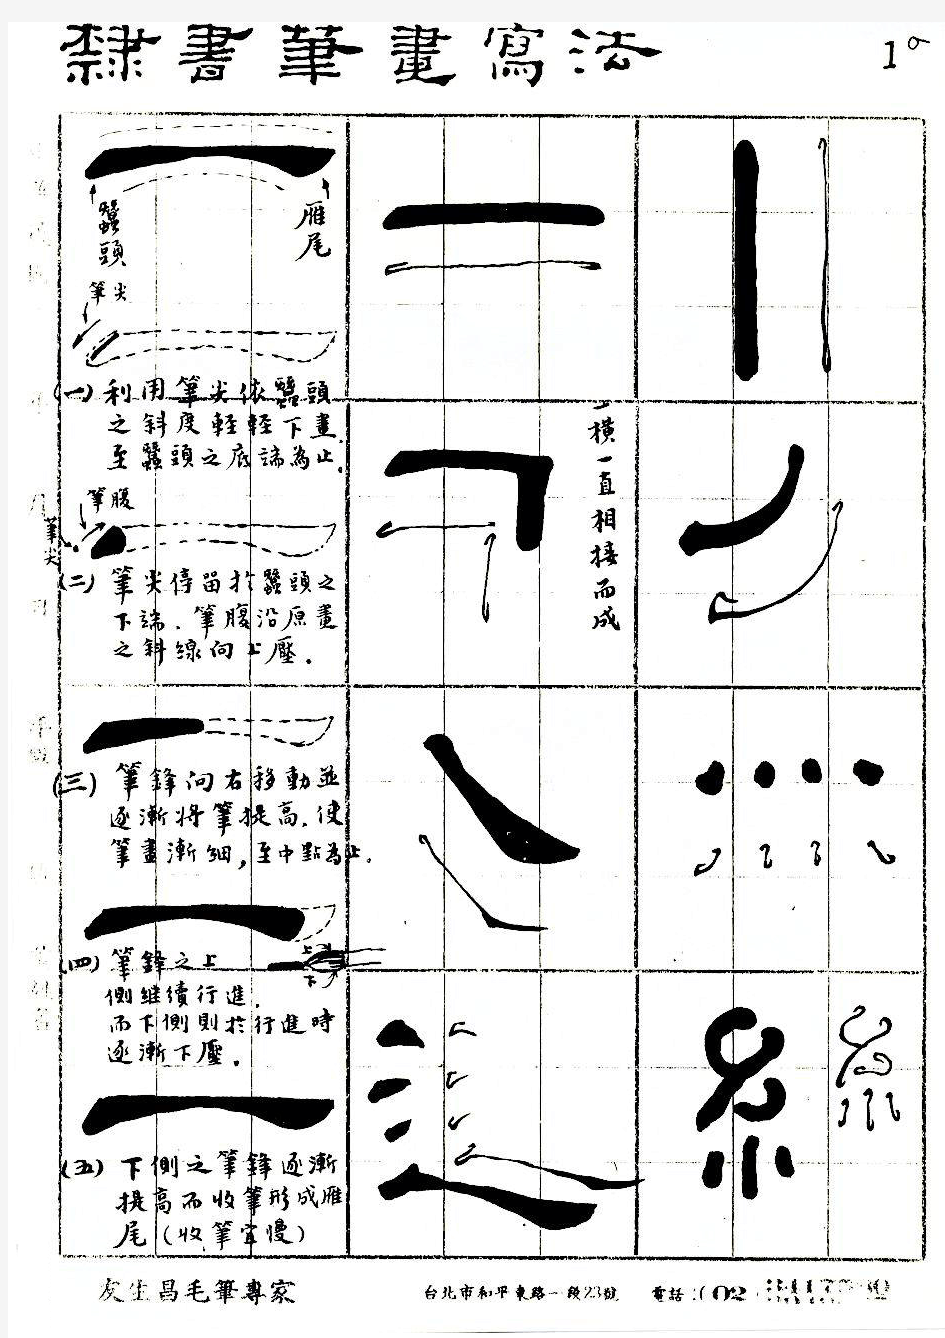 隸書筆畫寫法
1
蠶頭
雁尾
筆尖
(一) 利用筆尖依蠶頭
之斜度輕輕下畫.
至蠶頭之底端為止.
筆腹
筆尖
(二) 筆尖停留於蠶頭之
下端.筆腹沿原畫
之斜線向上壓.
(三) 筆鋒向右移動並
逐漸將筆提高.使
筆畫漸細,至中點為止.
上
下
(四) 筆鋒之上
側継續行進.
而下側則於行進時
逐漸下壓.
(五) 下側之筆鋒逐漸
提高而收筆形成雁
尾(收筆宜慢)
一橫一直相接而成
友生昌毛筆專家
台北市和平東路一段23號
電話:(02)